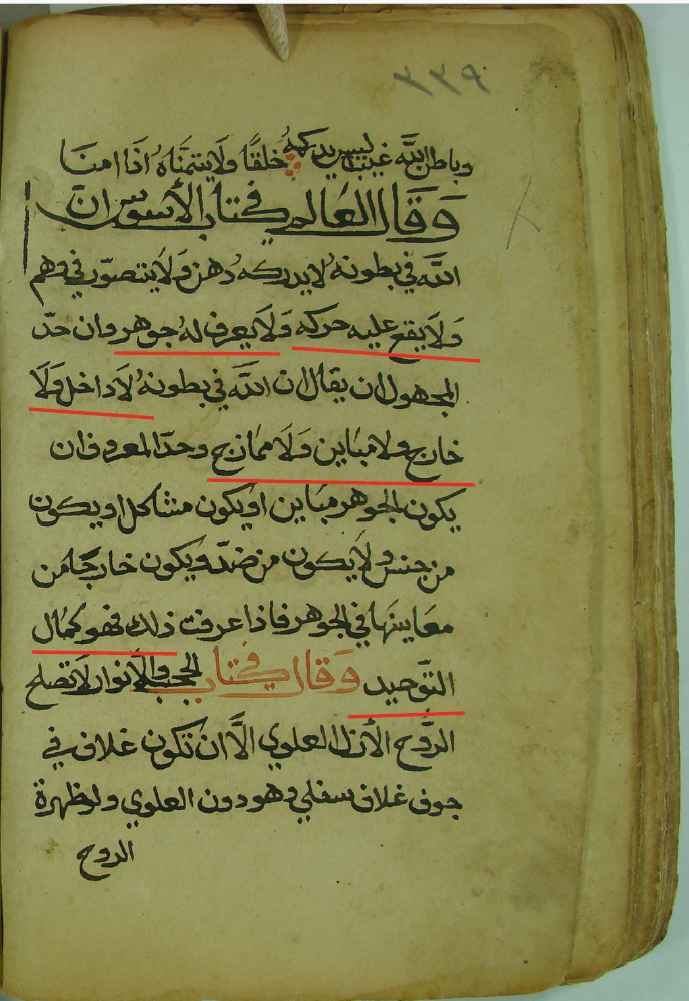 ٣٣٩
وباطن الله غيب ليس يدركه خلقًا ولا يتمنّاهُ اذا امنا
وَقَالَ العَالِم في كتاب الأسوس ان
الله في بطونهُ لا يدركه دهن وَلا يتصوّر في وهم
وَلَا يقع عليه حركه وَلَا يعرف لهُ جوهر وان حدّ
المجهول ان يقال ان الله في بطونهُ لَا داخل وَلَا
خارج ولا مبَاين وَلَا ممَازج وحدّ المعروف ان
يكون الجوهر مبَاين او يكون مشاكل او يكون
من جنس ولا يكون من ضدّ ويكون خارجًا من
معاينتها في الجوهر فاذا عرفت ذلك فهو كمَال
التوّحيد وَقَال في كتاب الحجب والأنوار لَا تصلح
الرّوح الأزل العلوي الَّا ان تكون غلاف في
جوف غلاف سفلي وهو دون العلوي ولو ظهرة
الروح